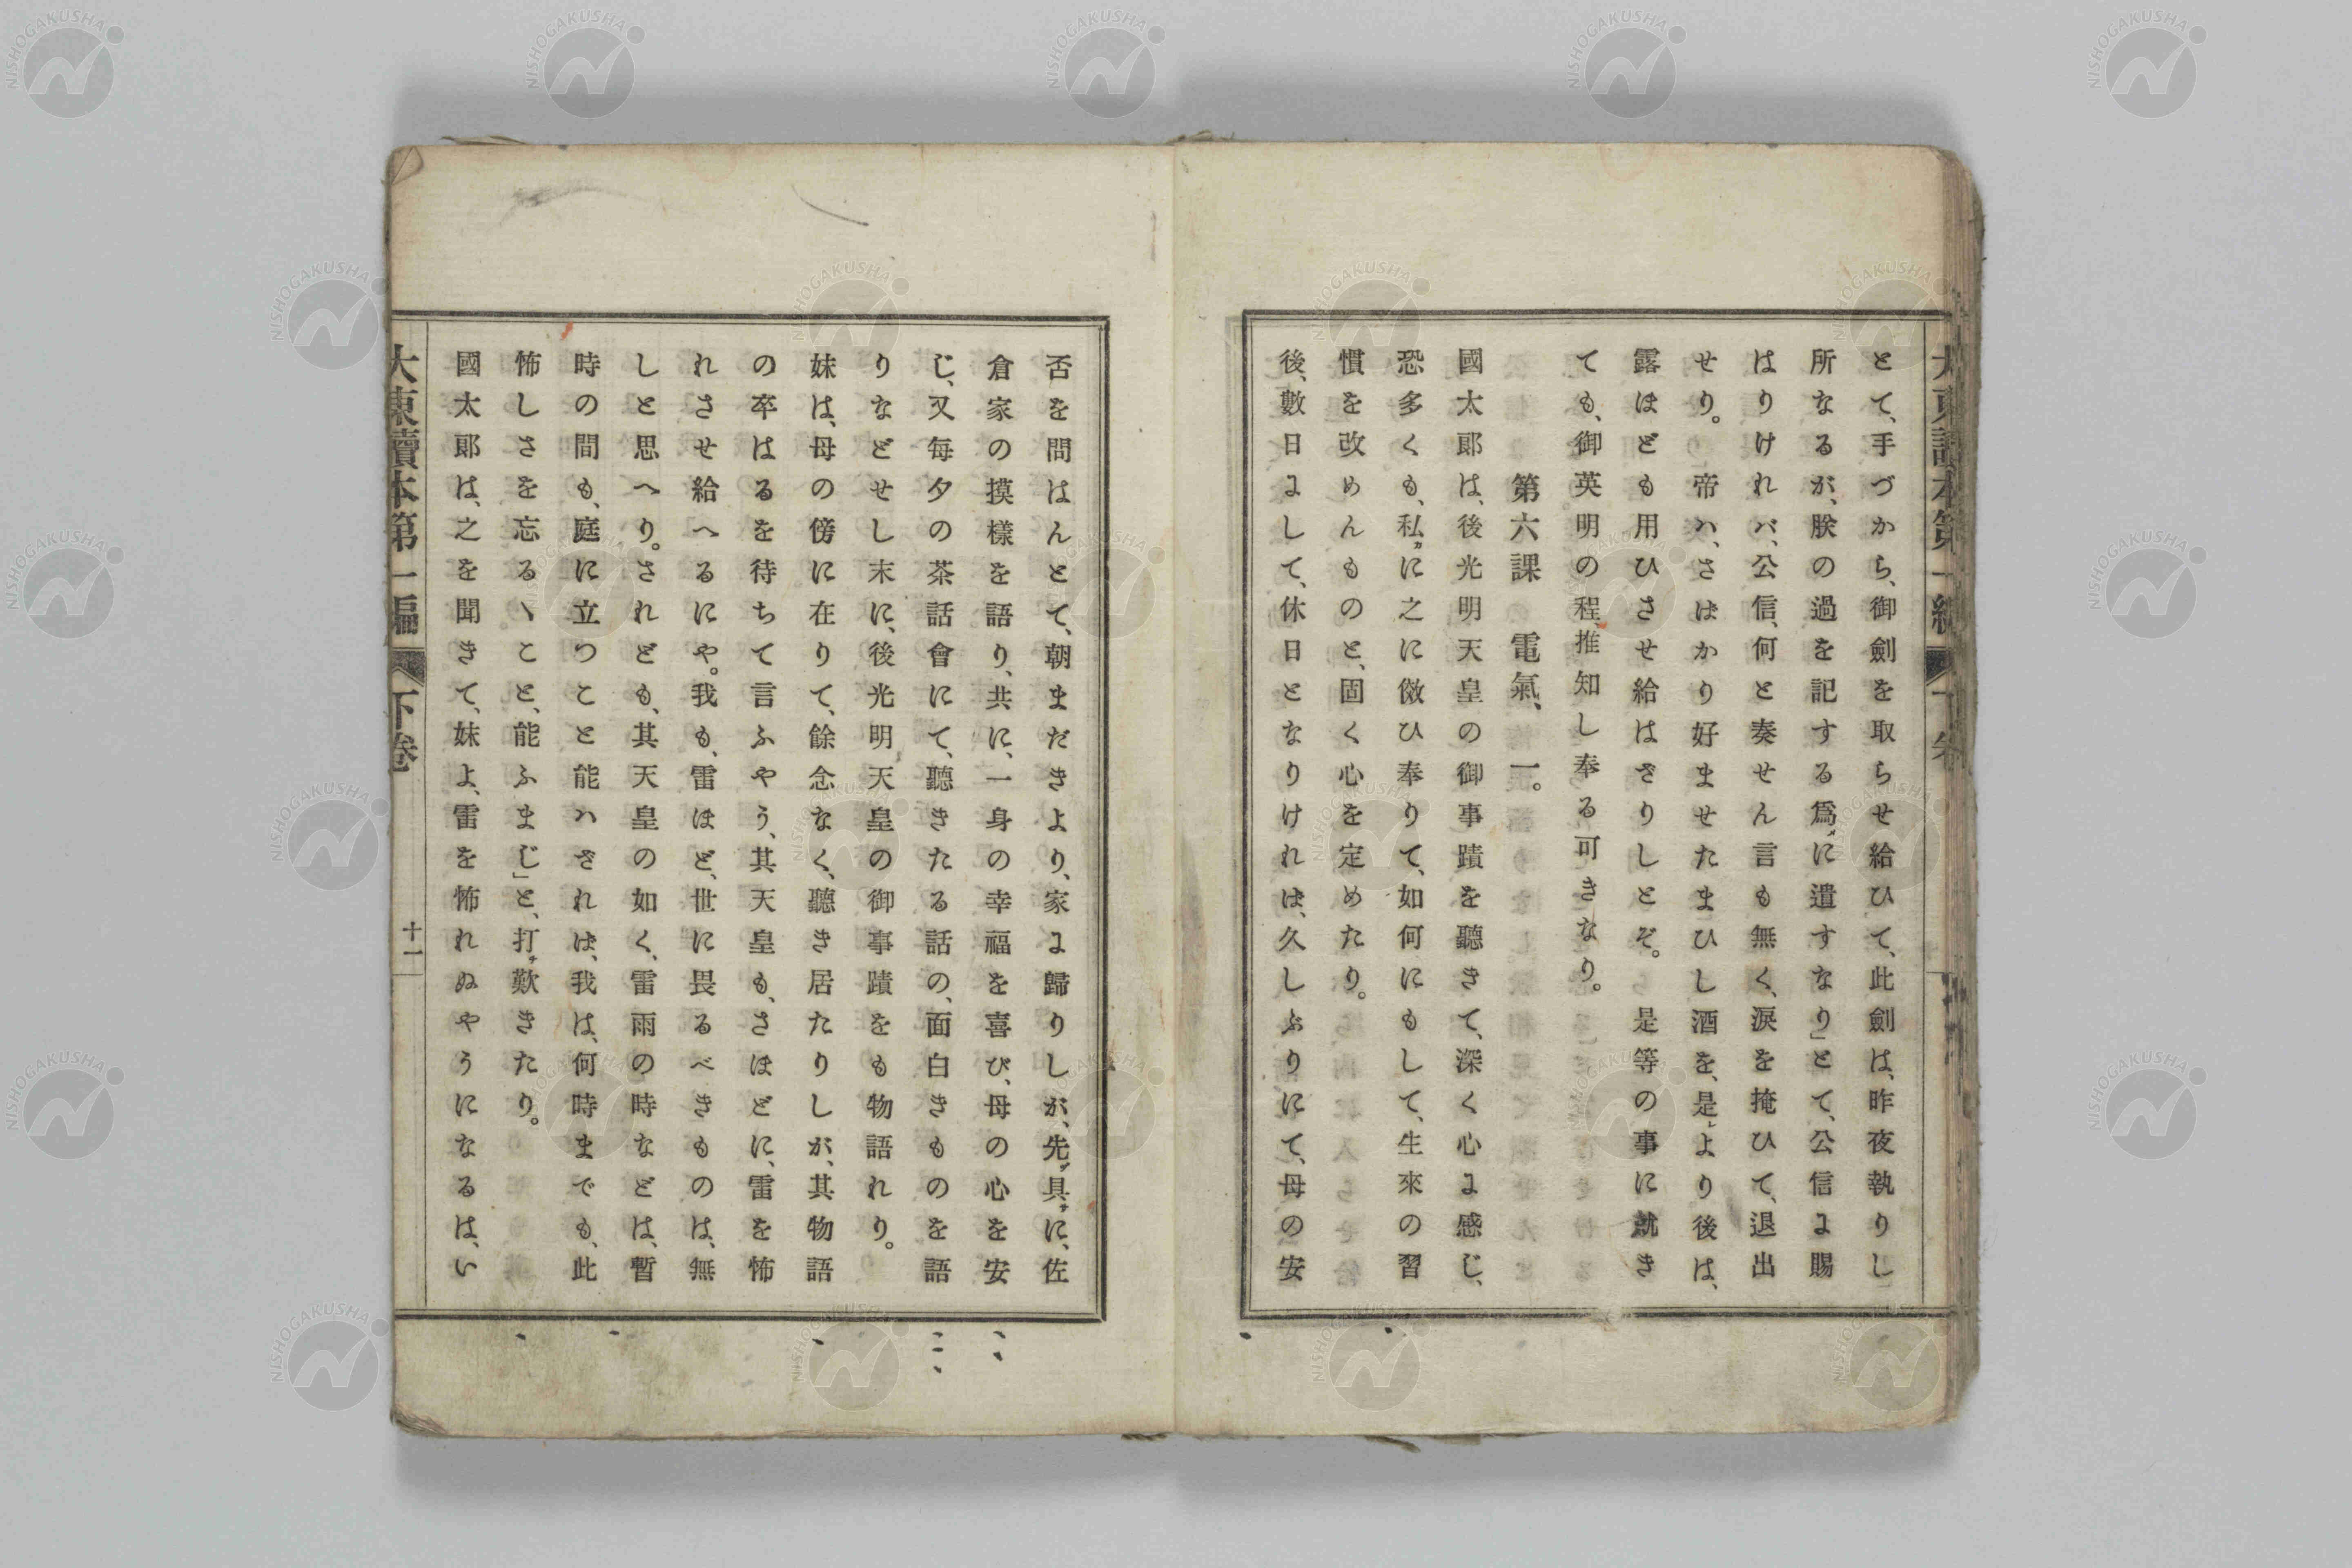 とて、手づから、御劍を取らせ給ひて、此劍は、昨夜執りし
所なるが、朕の過を記する爲メに遺すなり」とて、公信よ賜
はりけれバ、公信、何と奏せん言も無く、涙を掩ひて、退出
せり。帝ハ、さはかり好ませたまひし酒を、是レより後は、
露ほども用ひさせ給はざりしとぞ。是等の事に就き
ても、御英明の程、推知し奉る可きなり。
第六課 電氣、一。
國太郎は、後光明天皇の御事蹟を聽きて、深く心よ感じ、
恐多くも、私カに之に傚ひ奉りて、如何にもして、生來の習
慣を改めんものと、固く心を定めたり。
後、數日よして、休日となりけれは、久しぶりにて、母の安
否を問はんとて、朝まだきより、家よ歸りしが、先ヅ具サに、佐
倉家の摸樣を語り、共に、一身の幸福を喜び、母の心を安
じ、又每夕の茶話會にて、聽きたる話の、面白きものを語
りなどせし末に、後光明天皇の御事蹟をも物語れり。
妹は、母の傍に在りて、餘念なく、聽き居たりしが、其物語
の卒はるを待ちて言ふやう、其天皇も、さほどに、雷を怖
れさせ給へるにや。我も、雷ほど、世に畏るべきものは、無
しと思へり。されども、其天皇の如く、雷雨の時などは、暫
時の間も、庭に立つこと能ハざれは、我は、何時までも、此
怖しさを忘るヽこと、能ふまじ」と、打チ歎きたり。
國太郎は、之を聞きて、妹よ、雷を怖れぬやうになるは、い
大東讀本第二編 下卷 十一
NISHOGAKUSHA